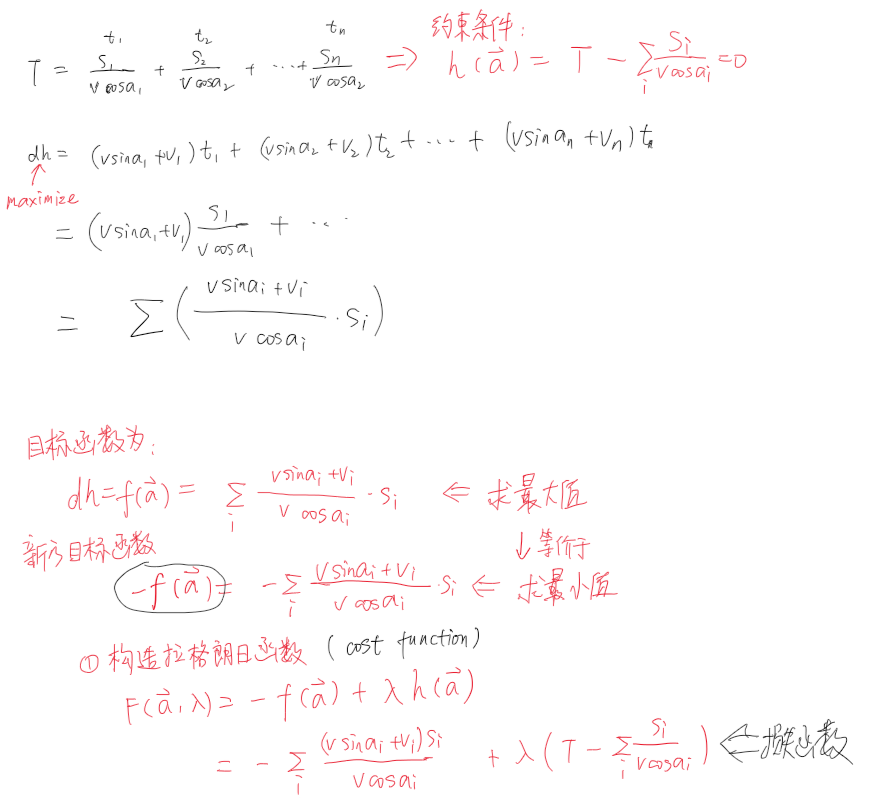 t₁ t₂ tₙ
T = S₁/(v cosa₁) + S₂/(v cosa₂) + ⋯ + Sn/(v cosa₂) ⇒
约束条件:
h(a⃗) = T − ∑ᵢ Sᵢ/(v cosaᵢ) = 0
dh = (vsina₁+v₁)t₁ + (vsina₂+v₂)t₂ + ⋯ + (vsinaₙ+vₙ)tₙ
↑
maximize
= (vsina₁+v₁) S₁/(v cosa₁) + ⋯
= ∑ ( (vsinaᵢ+vᵢ)/(v cosaᵢ) · Sᵢ )
目标函数为:
dh = f(a⃗) = ∑ᵢ (vsinaᵢ+vᵢ)/(v cosaᵢ) · Sᵢ ⇐ 求最大值
新的目标函数
↓ 等价于
−f(a⃗) = −∑ᵢ (vsinaᵢ+vᵢ)/(v cosaᵢ) · Sᵢ ⇐ 求最小值
① 构造拉格朗日函数 (cost function)
F(a⃗, λ) = −f(a⃗) + λ h(a⃗)
= −∑ᵢ (v sinaᵢ+vᵢ)Sᵢ/(v cosaᵢ) + λ(T − ∑ᵢ Sᵢ/(v cosaᵢ)) ⇐ 损失函数